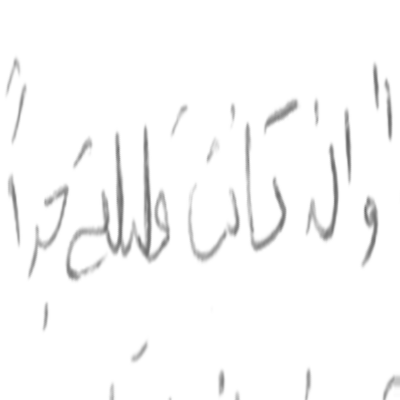 "وإن كانت قليلة جداً"